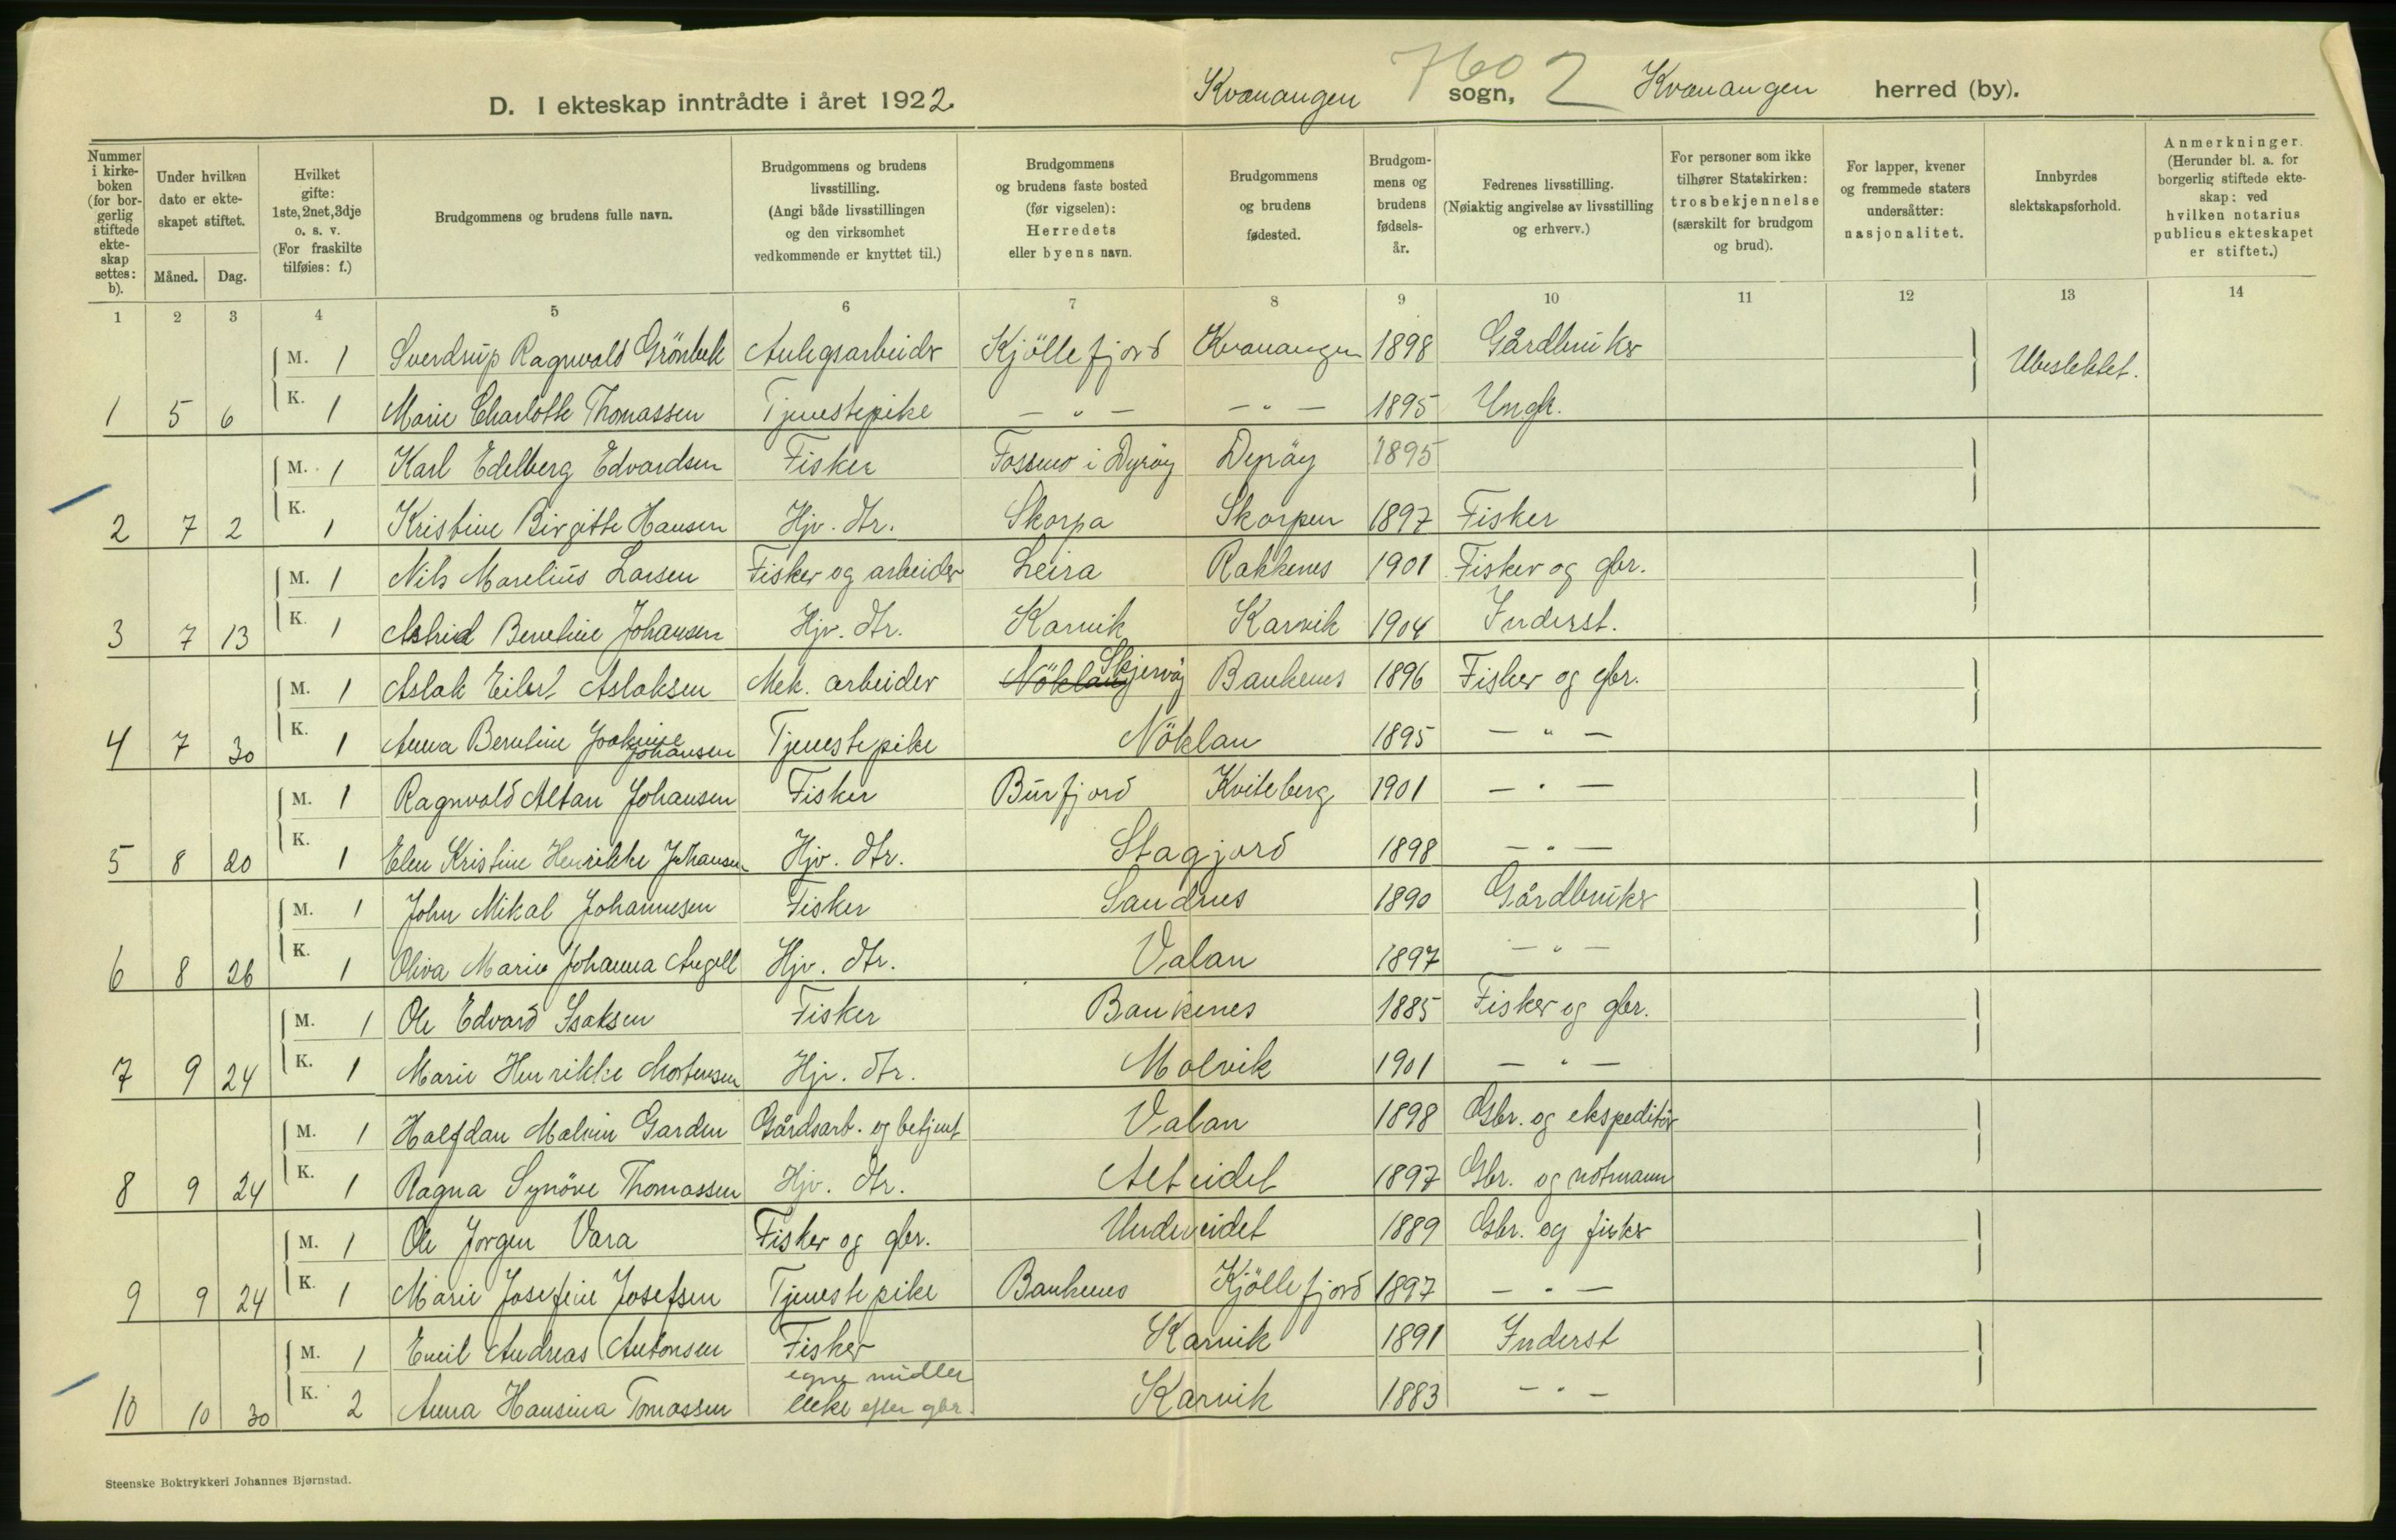 D. I ekteskap inntrådte i året 1922. Kvænangen sogn, 7602 Kvænangen herred (by).
Nummer i kirkeboken (for borgerlig stiftede ekteskap settes: b).
Under hvilken dato er ekteskapet stiftet.
Måned. Dag.
Hvilket gifte: 1ste, 2net, 3dje o. s. v. (For fraskilte tilføies: f.)
Brudgommens og brudens fulle navn.
Brudgommens og brudens livsstilling. (Angi både livsstillingen og den virksomhet vedkommende er knyttet til.)
Brudgommens og brudens faste bosted (før vigselen): Herredets eller byens navn.
Brudgommens og brudens fødested.
Brudgommens og brudens fødselsår.
Fedrenes livsstilling. (Nøiaktig angivelse av livsstilling og erhverv.)
For personer som ikke tilhører Statskirken: trosbekjennelse (særskilt for brudgom og brud).
For lapper, kvener og fremmede staters undersåtter: nasjonalitet.
Innbyrdes slektskapsforhold.
Anmerkninger. (Herunder bl. a. for borgerlig stiftede ekteskap: ved hvilken notarius publicus ekteskapet er stiftet.)
1 2 3 4 5 6 7 8 9 10 11 12 13 14
M. 1 Sverdrup Ragnvald Grönbek Anlegsarbeider Kjöllefjord Kvænangen 1898 Gårdbruker Ubeslektet.
1 5 6 K. 1 Marie Charlotte Thomassen Tjenestepike — " — — " — 1895 Ungk.
M. 1 Karl Edelberg Edvardsen Fisker Fossmo i Dyröy Dyröy 1895
2 7 2 K. 1 Kristine Birgitte Hansen Hjv. dtr. Skorpa Skorpen 1897 Fisker
M. 1 Nils Marelius Larsen Fisker og arbeider Leira Rakkenes 1901 Fisker og gbr.
3 7 13 K. 1 Astrid Berntine Johansen Hjv. dtr. Karvik Karvik 1904 Inderst.
M. 1 Aslak Eilert Aslaksen Mek. arbeider Nöklan Skjervöy Bankenes 1896 Fisker og gbr.
4 7 30 K. 1 Anna Berntine Joakime Johansen Tjenestepike Nöklan 1895 — " —
M. 1 Ragnvald Altan Johansen Fisker Burfjord Kviteberg 1901 — " —
5 8 20 K. 1 Elen Kristine Henrikke Johansen Hjv. dtr. Stagjord 1898 — " —
M. 1 John Mikal Johannesen Fisker Sandnes 1890 Gårdbruker
6 8 26 K. 1 Oliva Marie Johanna Angell Hjv. dtr. Valan 1897 — " —
M. 1 Ole Edvard Isaksen Fisker Bankenes 1885 Fisker og gbr.
7 9 24 K. 1 Marie Henrikke Mortensen Hjv. dtr. Malvik 1901 — " —
M. 1 Halfdan Malvin Garden Gårdsarb. og betjent Valan 1898 Gbr. og ekspeditör
8 9 24 K. 1 Ragna Synöve Thomassen Hjv. dtr. Alteidet 1897 Gbr. og notmann
M. 1 Ole Jorgen Vara Fisker og gbr. Undereidet 1889 Gbr. og fisker
9 9 24 K. 1 Marie Josefine Josefsen Tjenestepike Bankenes Kjöllefjord 1897 — " —
M. 1 Emil Andreas Antonsen Fisker Karvik 1891 Inderst
10 10 30 K. 2 Anna Hansina Tomassen egne midler Enke efter gbr. Karvik 1883 — " —
Steenske Boktrykkeri Johannes Bjørnstad.